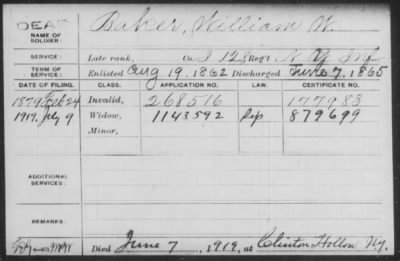 DEAF
NAME OF SOLDIER: Baker, William W.
SERVICE: Late rank, Co. I 128 Reg't N.Y. Inf
TERM OF SERVICE: Enlisted Aug 19, 1862 Discharged June 7, 1865
DATE OF FILING. CLASS. APPLICATION NO. LAW. CERTIFICATE NO.
1879 Feb 24 Invalid, 268516 177983
1919. July 9 Widow, 1143592 879699
Minor,
ADDITIONAL SERVICES:
REMARKS:
Died June 7, 1919, at Clinton Hollow N.Y.